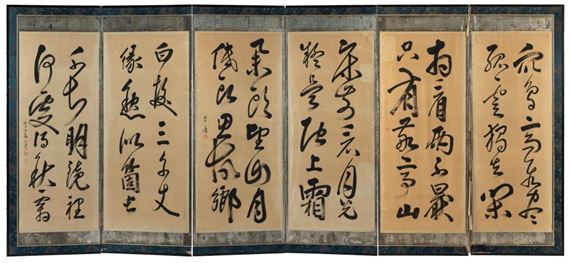 衆鳥高飛盡
孤雲獨去閑
相看兩不厭
只有敬亭山
床前看月光
疑是地上霜
擧頭望山月
低頭思故鄉
白髮三千丈
緣愁似箇長
不知明鏡裡
何處得秋霜